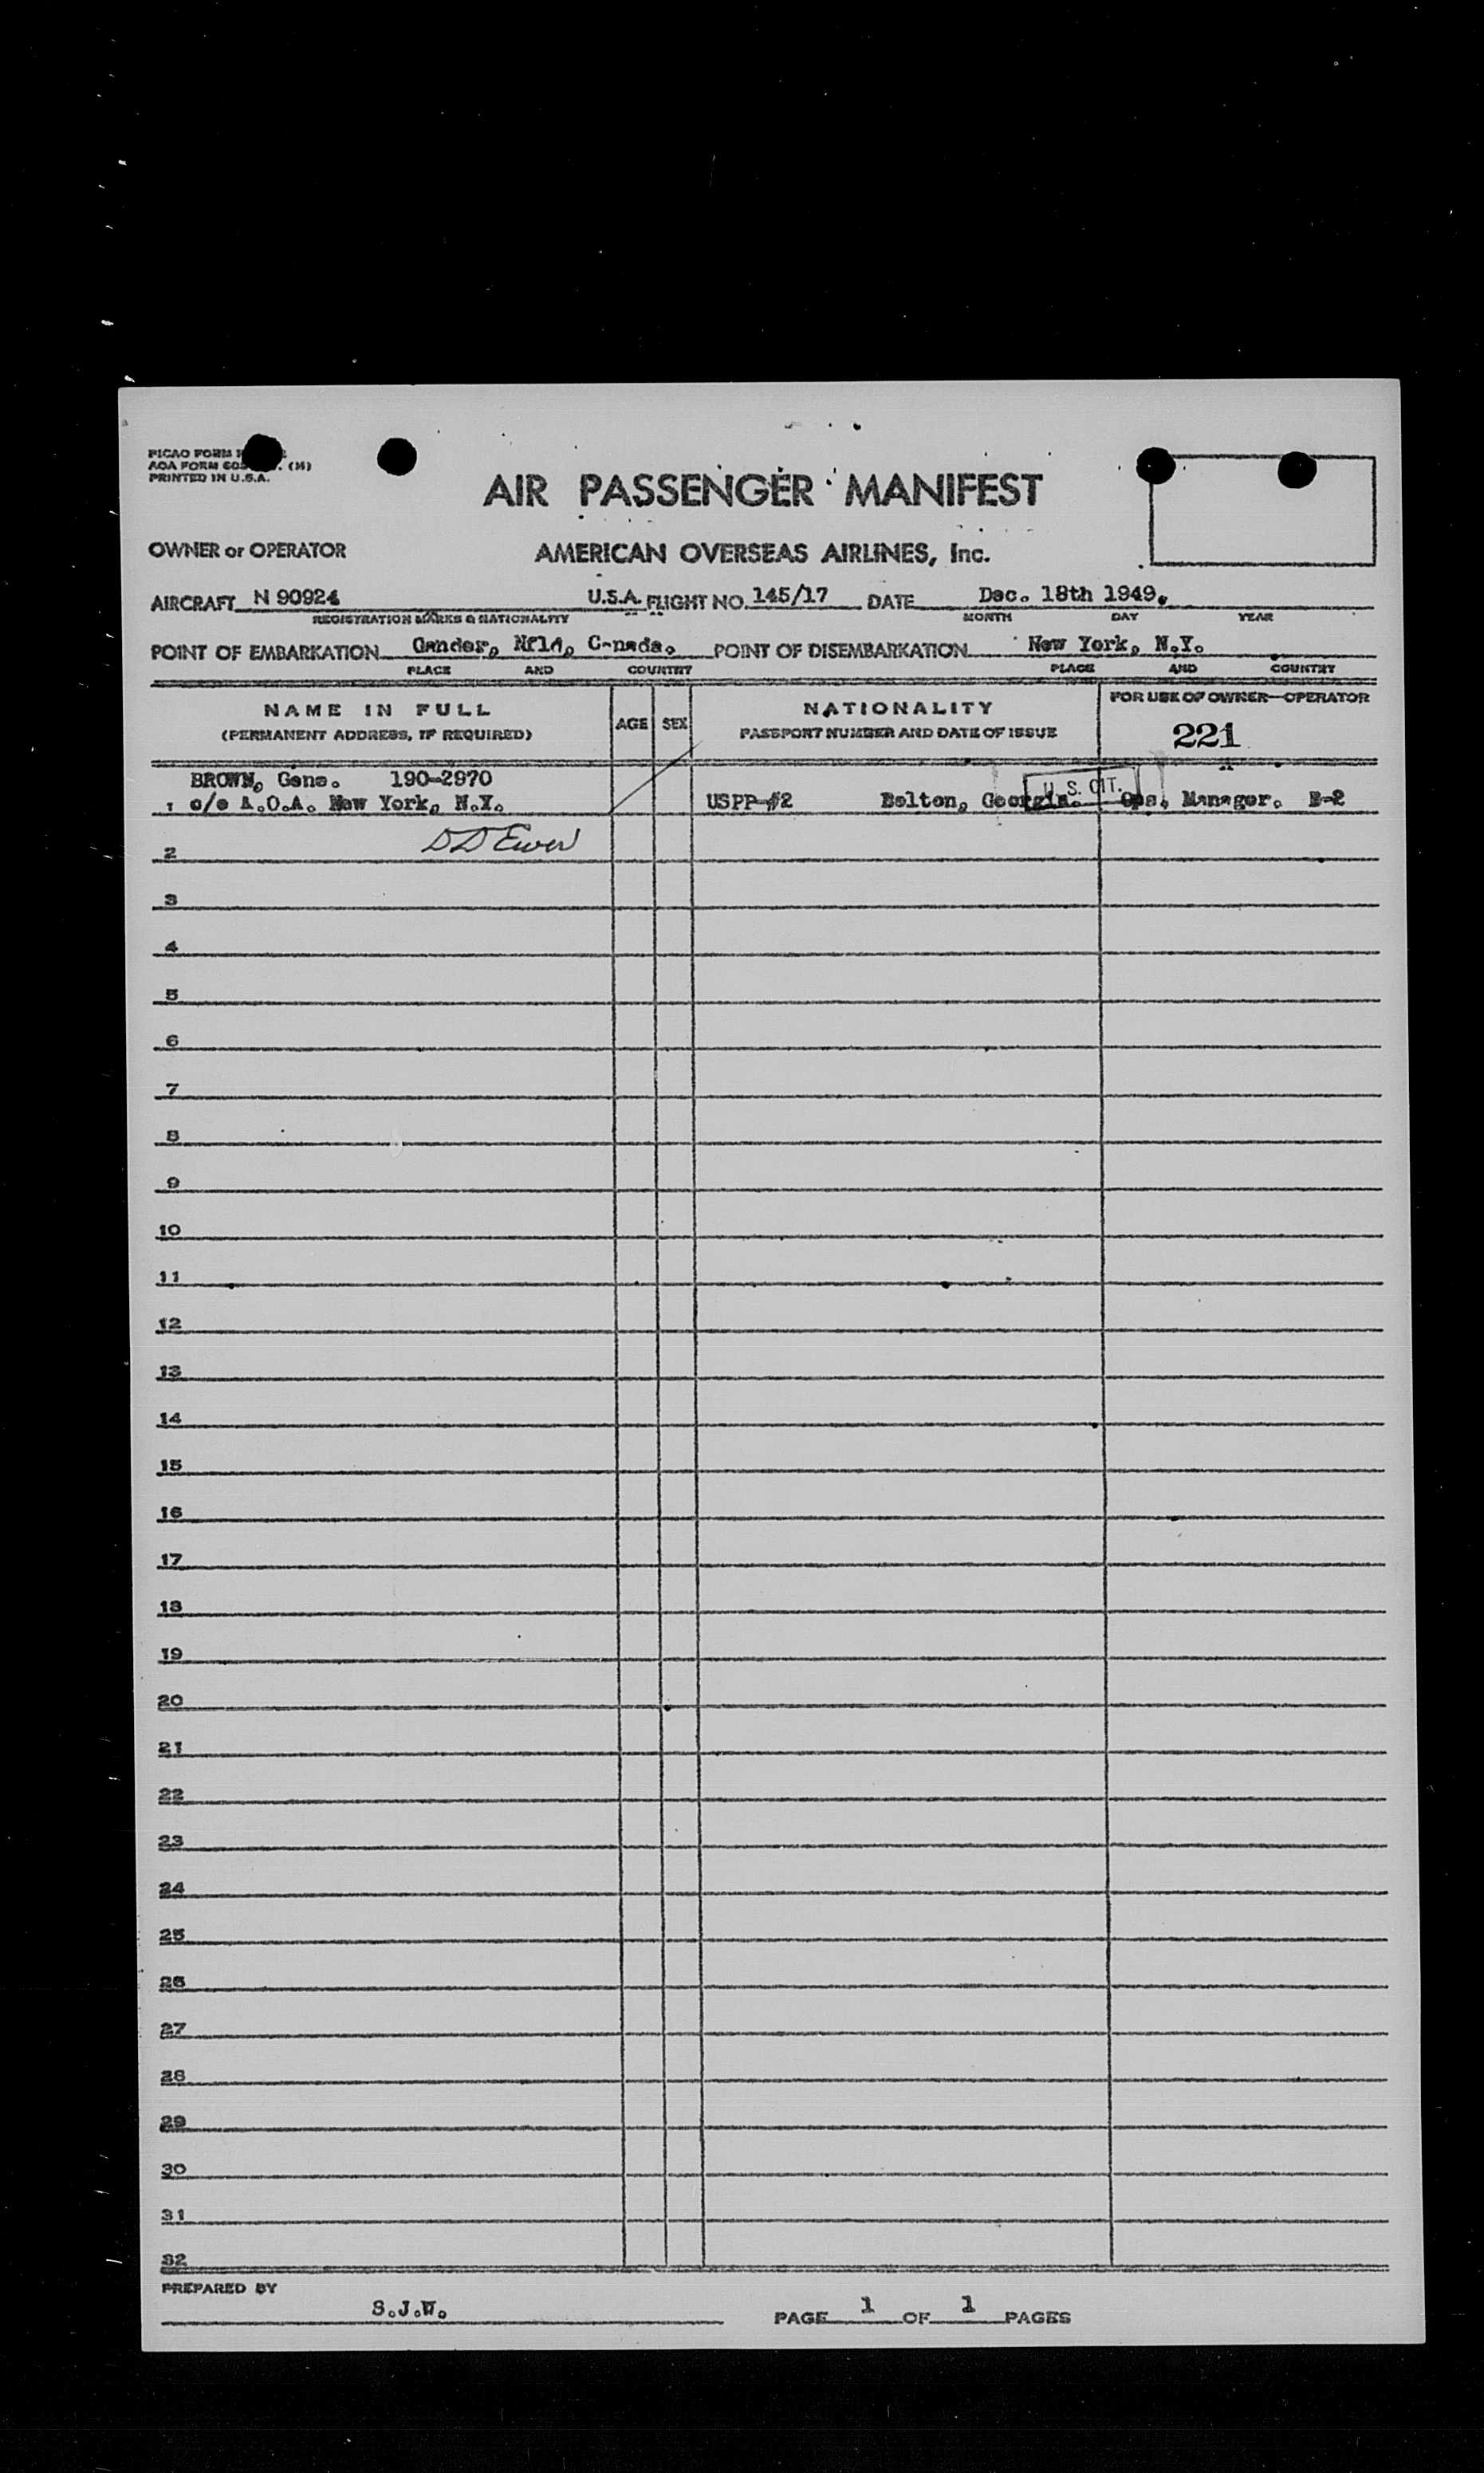 PICAO FORM
AOA FORM (M)
PRINTED IN U.S.A.
AIR PASSENGER MANIFEST
OWNER or OPERATOR AMERICAN OVERSEAS AIRLINES, Inc.
AIRCRAFT N 90924 U.S.A. FLIGHT NO. 145/17 DATE Dec. 18th 1949.
REGISTRATION MARKS & NATIONALITY MONTH DAY YEAR
POINT OF EMBARKATION Gander, Nfld, C-nada. POINT OF DISEMBARKATION New York, N.Y.
PLACE AND COUNTRY PLACE AND COUNTRY
NAME IN FULL AGE SEX NATIONALITY FOR USE OF OWNER—OPERATOR
(PERMANENT ADDRESS, IF REQUIRED) PASSPORT NUMBER AND DATE OF ISSUE 221
BROWN, Gene. 190-2970
1 c/o A.O.A. New York, N.Y. USPP-#2 Bolton, Georgia. U.S. CIT. Ops. Manager. B-2
2
3
4
5
6
7
8
9
10
11
12
13
14
15
16
17
18
19
20
21
22
23
24
25
26
27
28
29
30
31
32
PREPARED BY
S.J.W. PAGE 1 OF 1 PAGES